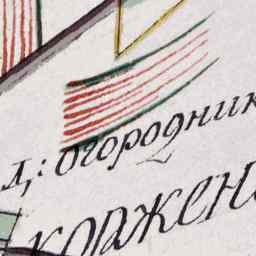 д: Огородник
коржен